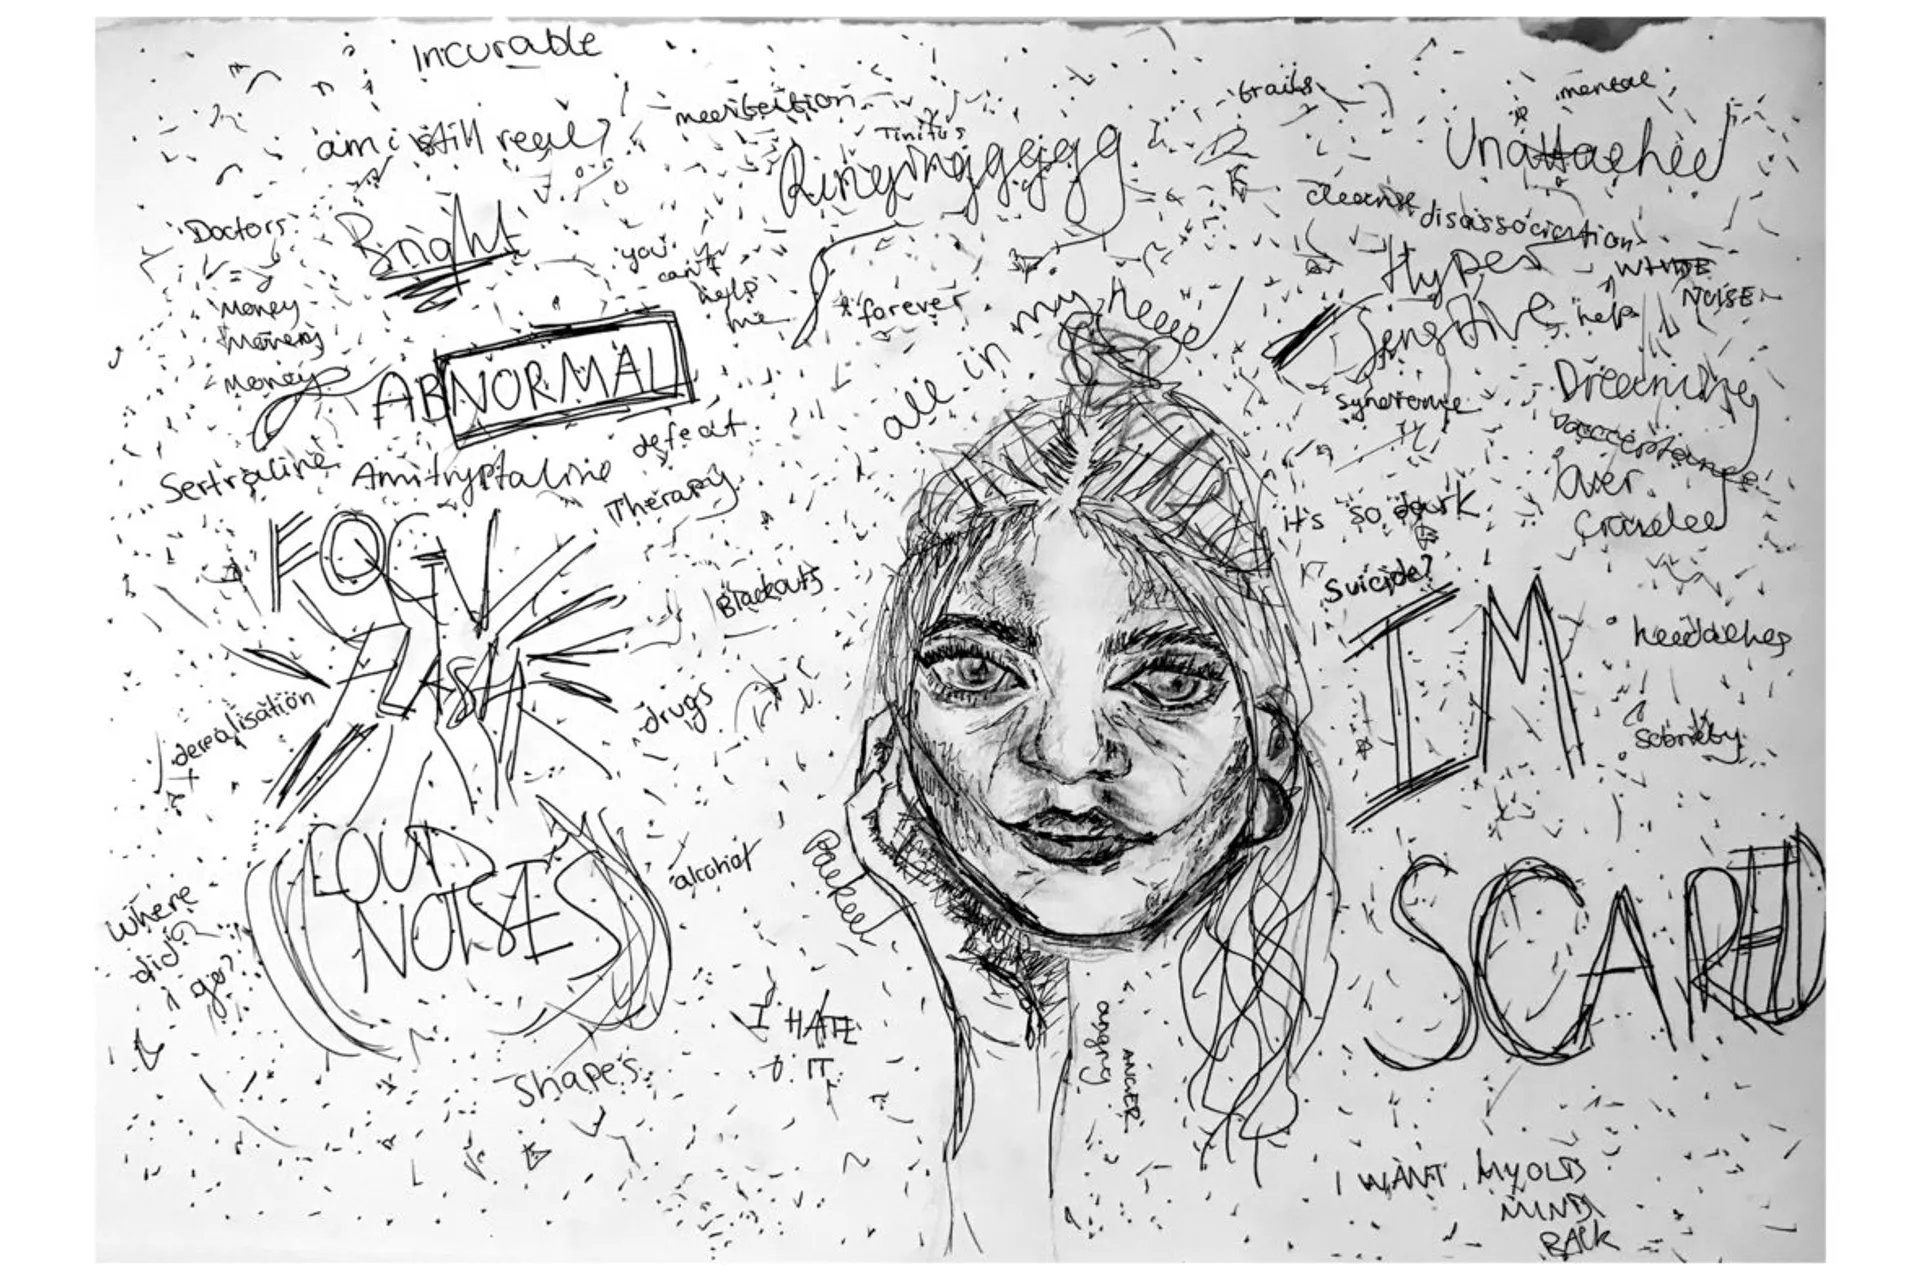 Incurable
am i still real?
meditation
Tinitus
Ringinggggg
trails
mental
Unattached
cleanse
disassociation
Doctors
=
Money
Money
Money
Bright
you
can't
help
me
forever
all in my head
Hyper
Sensitive
syndrome
WHITE
NOISE
help
ABNORMAL
defeat
Sertraline
Amitryptaline
Therapy
Dreaming
acceptance
Over
Crowded
it's so dark
Suicide?
FOGY
FLASH
Blackouts
drugs
derealisation
IM
SCARED
headaches
Sobriety
LOUD
NOISES
alcohol
Where
did
i
go?
I HATE
IT
Shapes
angry
ANGER
I WANT MY OLD
MIND
BACK